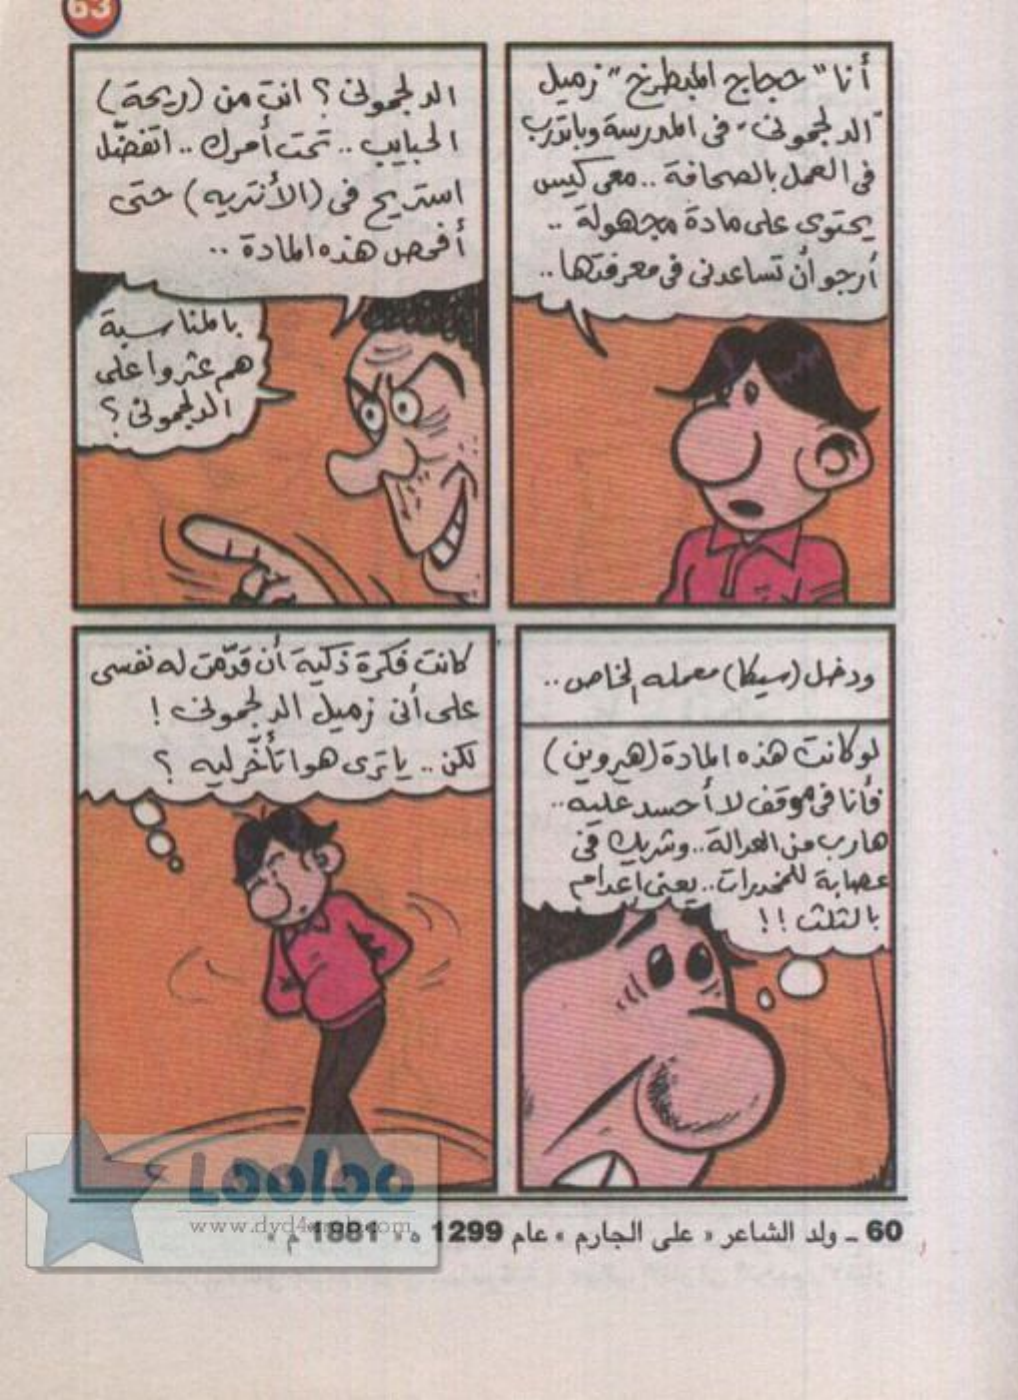 63
أنا "حجاج المبطرخ" زميل
"الدلجموني" في المدرسة وباتدرب
في العمل بالصحافة .. معي كيس
يحتوي على مادة مجهولة ..
أرجو أن تساعدني في معرفتها ..
الدلجمونى ؟ انت من (ريحة)
الحبايب .. تحت أمرك .. اتفضّل
استريح فى (الأنتريه) حتى
أفحص هذه المادة ..
بالمناسبة
هم عثروا على
الدلجمونى ؟
ودخل (سيكا) معمله الخاص ..
لو كانت هذه المادة (هيروين)
فأنا فى موقف لا أحسد عليه ..
هارب من العدالة .. وشريك فى
عصابة للمخدرات .. يعنى إعدام
بالتلت !!
كانت فكرة ذكية أن قدّمت له نفسى
على أنى زميل الدلجمونى !
لكن .. يا ترى هو اتأخّر ليه ؟
60 ـ ولد الشاعر « على الجارم » عام 1299 هـ « 1881 م »
Looloo
www.dvd4arab.com